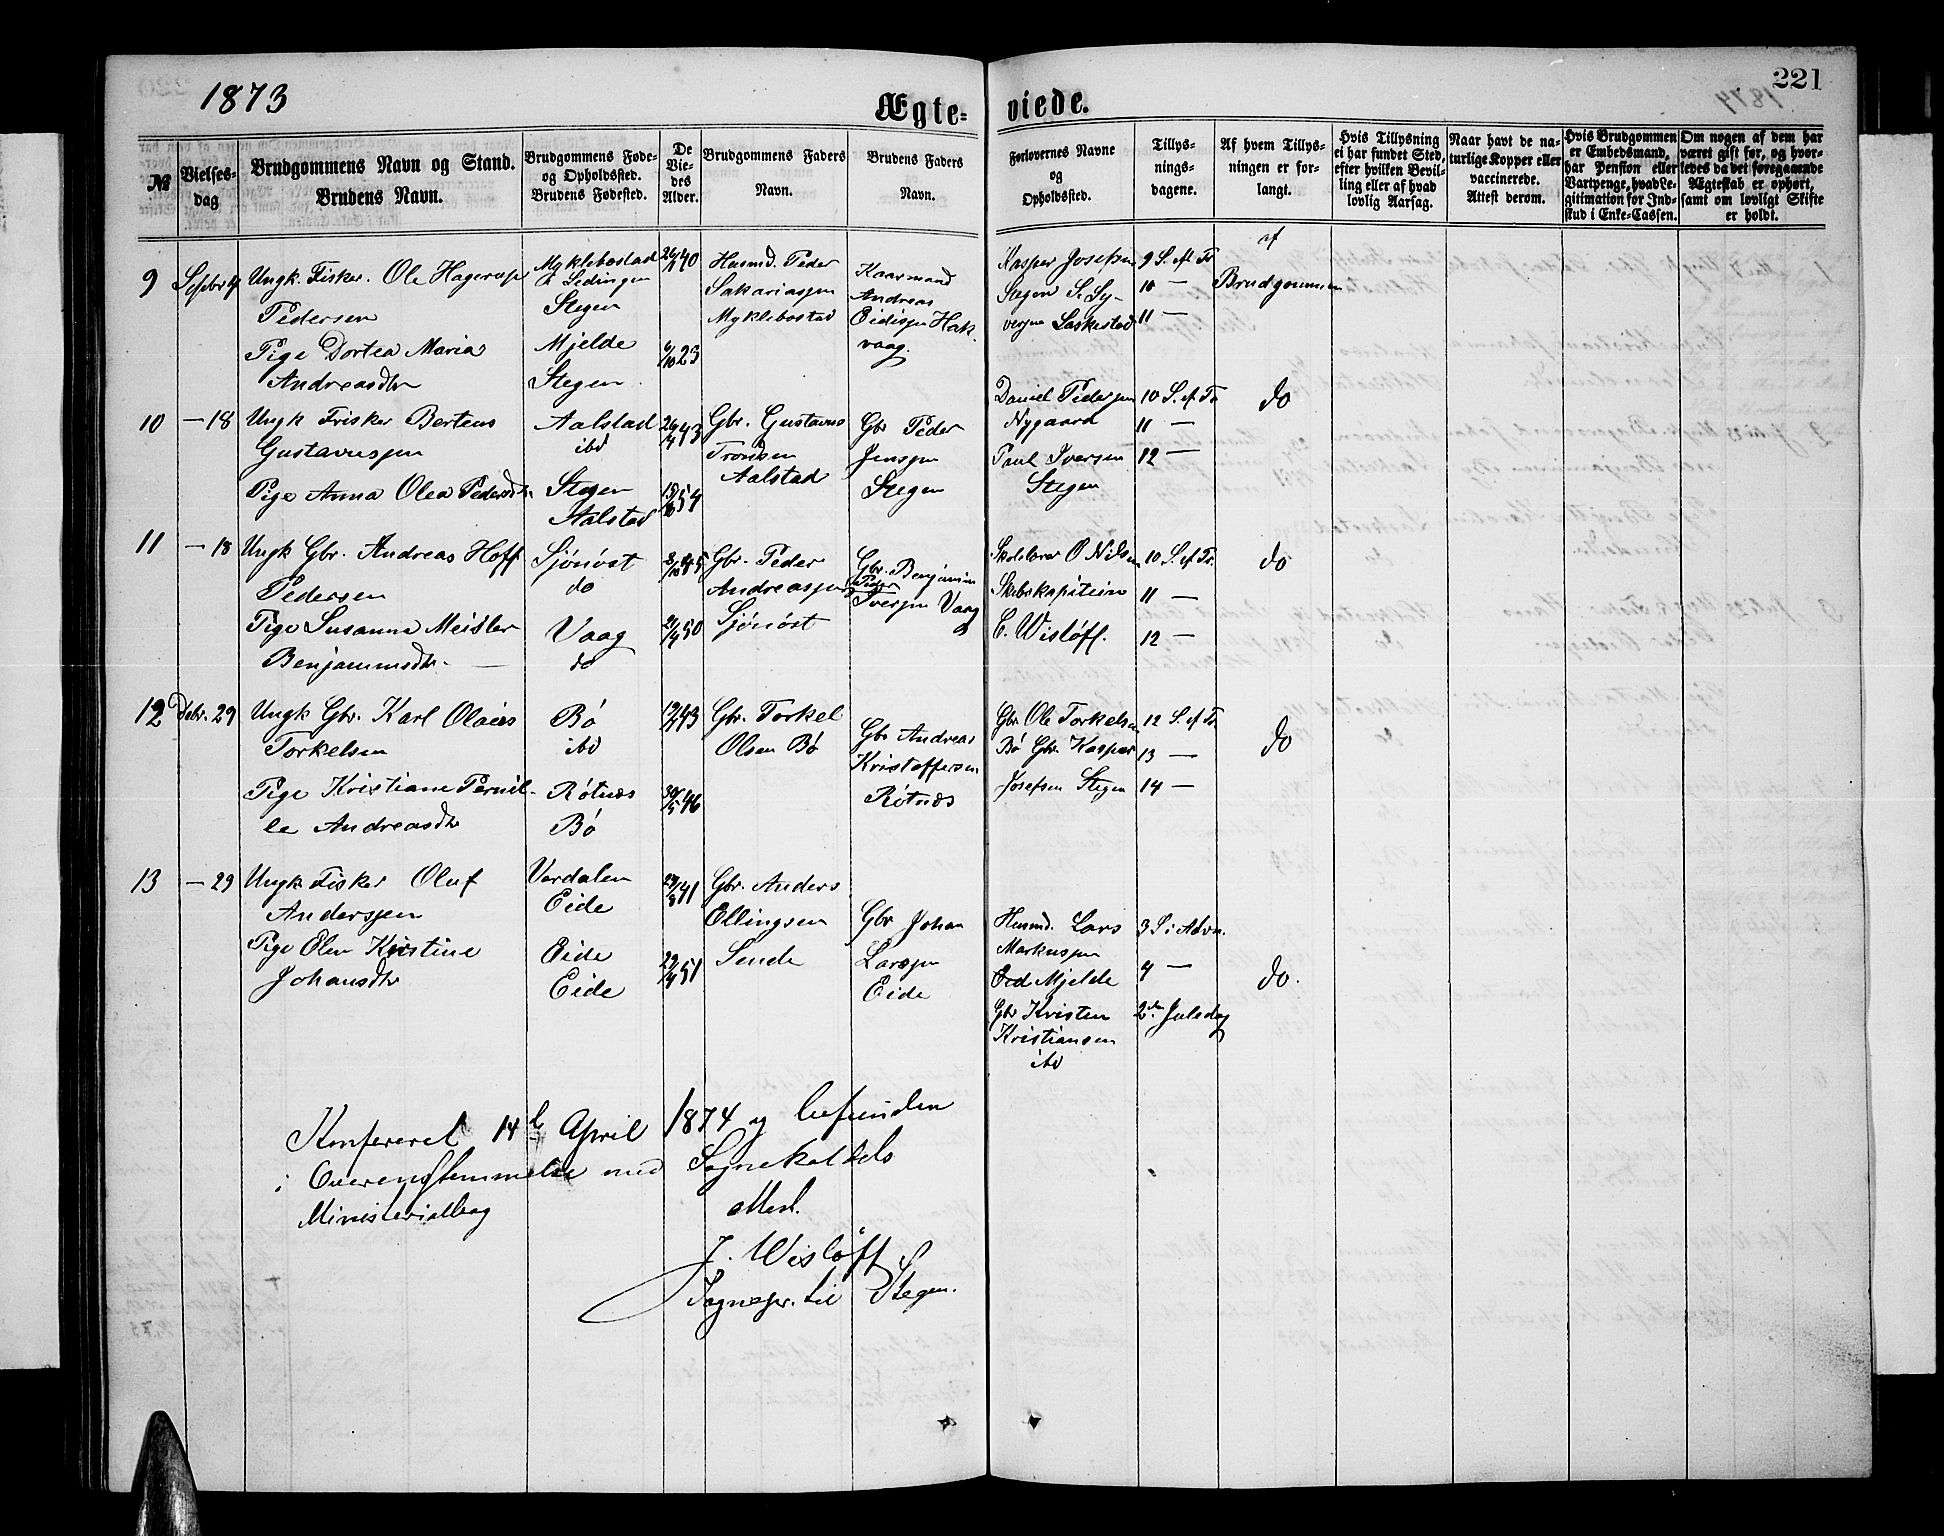 1873
Ægte-
viede.
221
№
Vielses-
dag
Brudgommens Navn og Stand.
Brudens Navn.
Brudgommens Føde-
og Opholdssted.
Brudens Fødested.
De
Vie-
des
Alder.
Brudgommens Faders
Navn.
Brudens Faders
Navn.
Forlovernes Navne
og
Opholdssted.
Tillys-
nings-
dagene.
Af hvem Tillys-
ningen er for-
langt.
Hvis Tillysning
ei har fundet Sted,
efter hvilken Bevil-
ling eller af hvad
lovlig Aarsag.
Naar havt de na-
turlige Kopper eller
vaccinerede.
Attest derom.
Hvis Brudgommen
er Embedsmand,
har Pension eller
Vartpenge, hvad Le-
gitimation for Ind-
skud i Enke-Cassen.
Om nogen af dem har
været gift før, og hvor-
ledes da det foregaaende
Ægteskab er ophørt,
samt om lovligt Skifte
er holdt.
9
Ungk. Fisker. Ole Hagerup
Pedersen
Pige Dortea Maria
Andreasdtr
Myklebostad
Stegen
Mjelde
Stegen
26/1 40
6/10 23
Husmd. Peder
Sakariassen
Myklebostad
Kaarmand
Andreas
Eidissen Hak-
vaag.
Kasper Josefsen
Stegen S. Sy-
versen Laskestad
9 S. ef. Tr
10 —
11 —
af
Brudgommen
10
— 18
Ungk Fisker Berteus
Gustavussen
Pige Anna Olea Pedersdtr.
Aalstad
ibd
Stegen
Aalstad
Gbr. Gustavus
Tronsen
Aalstad
Gbr Peder
Jenssen
Stegen
Daniel Pedersen
Nygaard
Paul Iversen
Stegen
10 S. ef. Tr
11 —
12 —
do
11
— 18
Ungk Gbr. Andreas Hoff
Pedersen
Pige Susanna Meisler
Benjaminsdtr. —
Sjønøst
do
Vaag
do
2/4 50
Gbr. Peder
Andreassen
Sjønøst
Gbr. Benjamin
Peder
Iversen Vaag
Skolelærer O Nilsen
Skibskapitein
C. Wisløff.
10 S. ef. Tr.
11 —
12 —
do
12
Debr. 29
Ungk Gbr. Karl Olaus
Torkelsen
Pige Kristiane Pernil-
le Andreasdtr
Bø
ibd
Røtnæs
Bø
30/5 46
Gbr. Torkel
Olsen Bø
Gbr Andreas
Kristoffersen
Røtnæs
Gbr Ole Torkelsen
Bø Gbr. Kasper
Josefsen Stegen
12 S. ef. Tr.
13 —
14 —
do
13
— 29
Ungk Fisker Oluf
Anderssen
Pige Elen Kristine
Johansdtr
Verdalen
Eide
Eide
Eide
Gbr. Anders
Ellingsen
Sende
Gbr Johan
Larssen
Eide
Husmd. Lars
Markussen
Mjelde
Gbr Kristen
Kristiansen
ibd
3 S i Advn.
4 —
2den Juledag
do.
Konfereret 14d April 1874 og befunden
i Overensstemmelse med Sognekaldets
Ministerialbog
J. Wisløff
Sognepr. til Stegen.